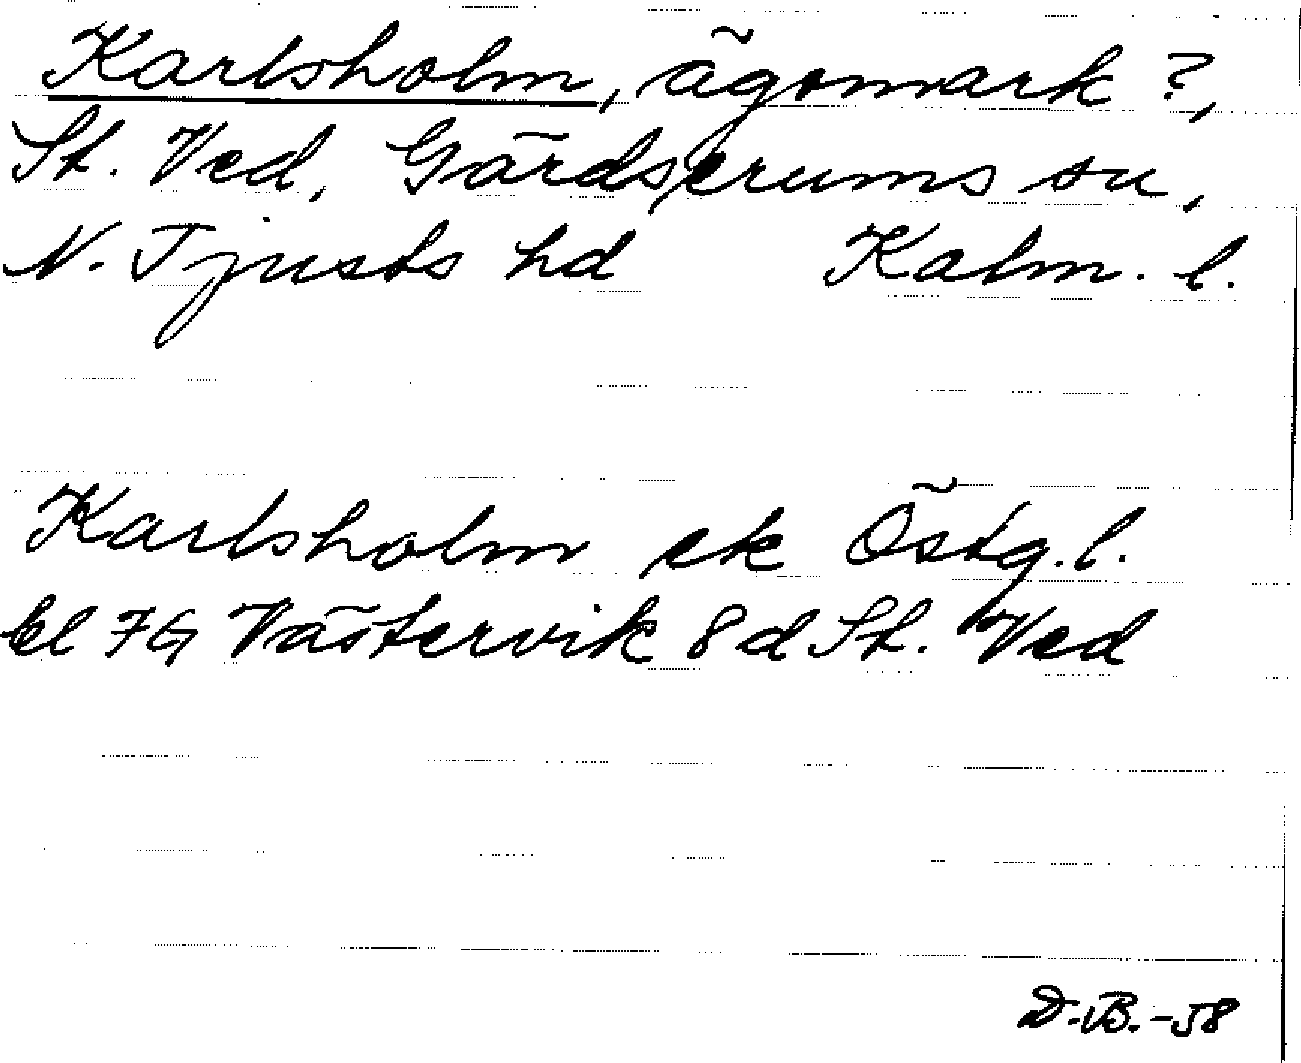 Karlsholm, ägomark ?,
St. Ved, Gärdserums sn,
N. Tjusts hd Kalm. l.
Karlsholm ek Östg. l.
bl 7G Västervik 8d St. Ved
D.B.-58